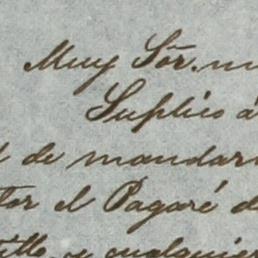 Muy Sõr. m
Suplico á
de mandar
tor el Pagaré d
illo, y cualquier